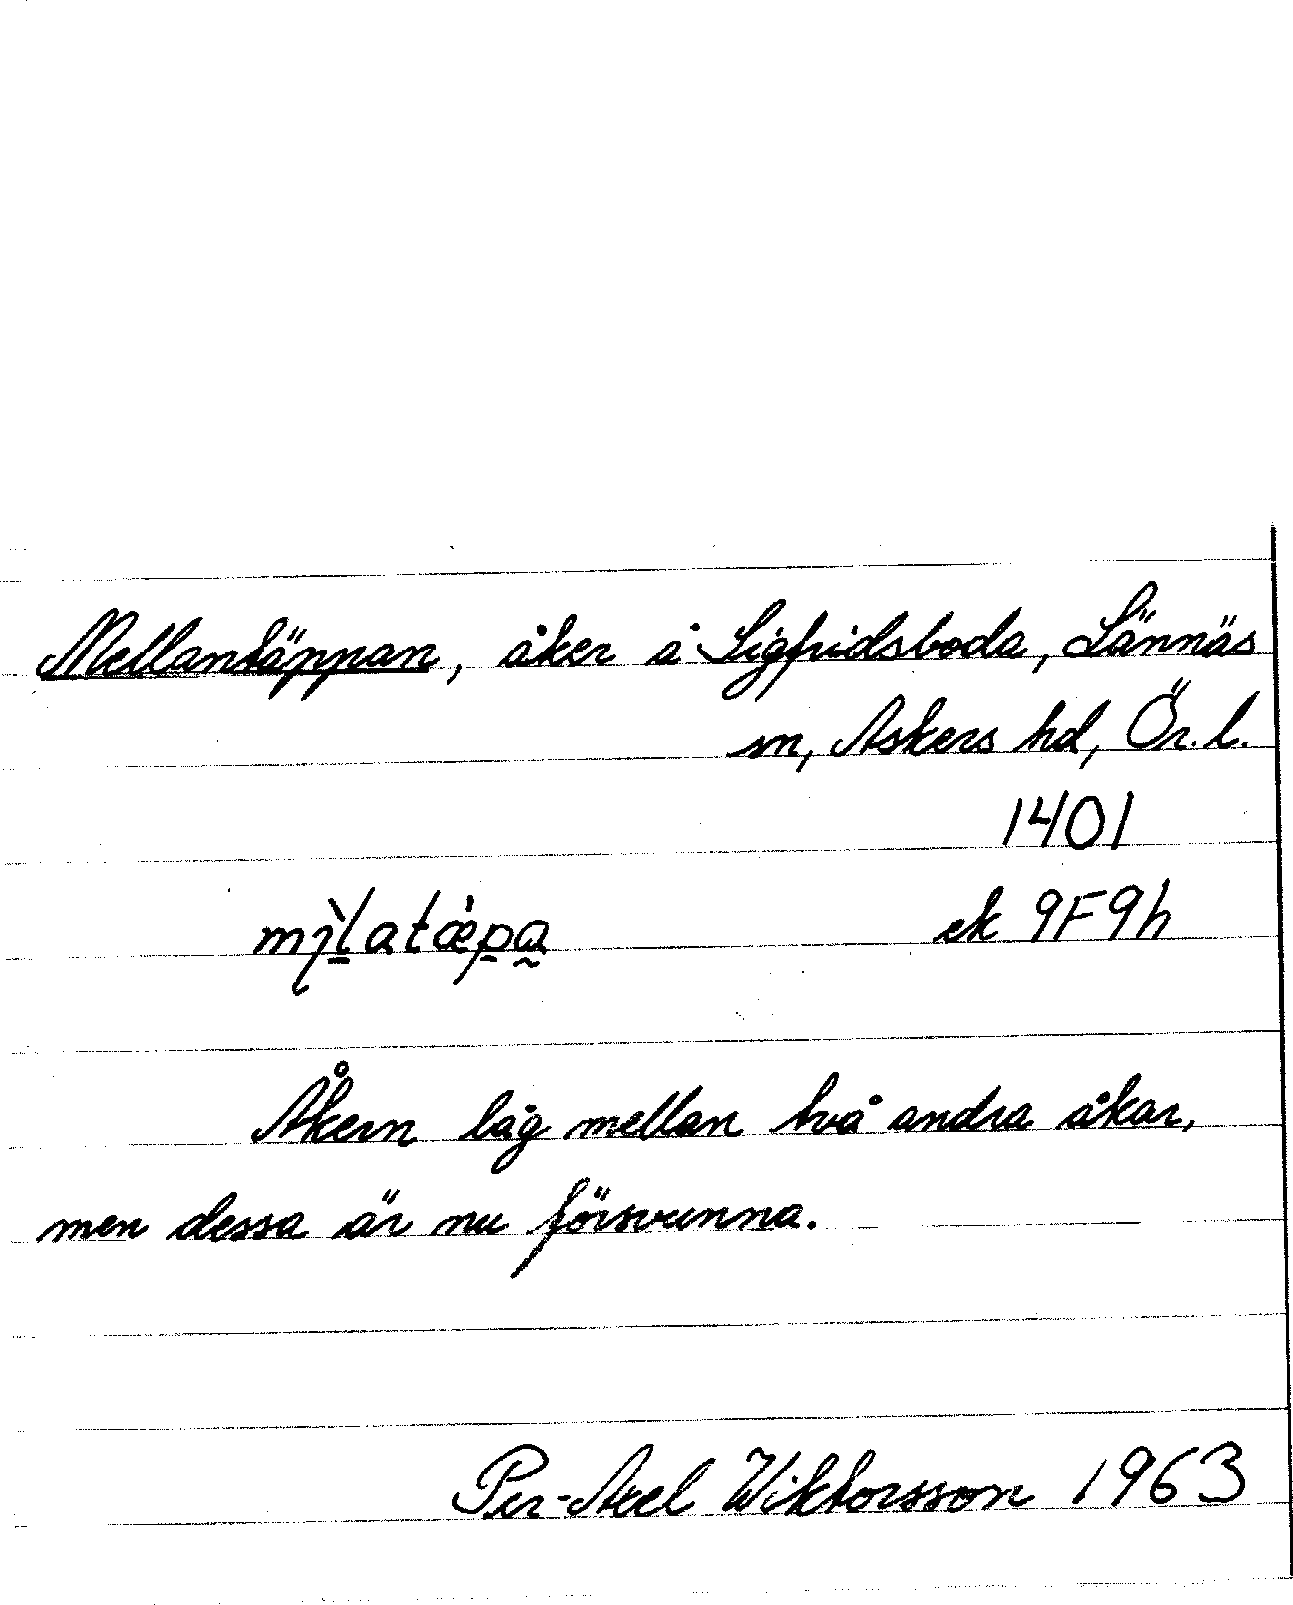 Mellantäppan, åker å Sigfridsboda, Lännäs
sn, Askers hd, Ör. l.
1401
ek 9F9h
Åkern låg mellan två andra åkar,
men dessa är nu försvunna.
Per-Axel Wiktorsson 1963